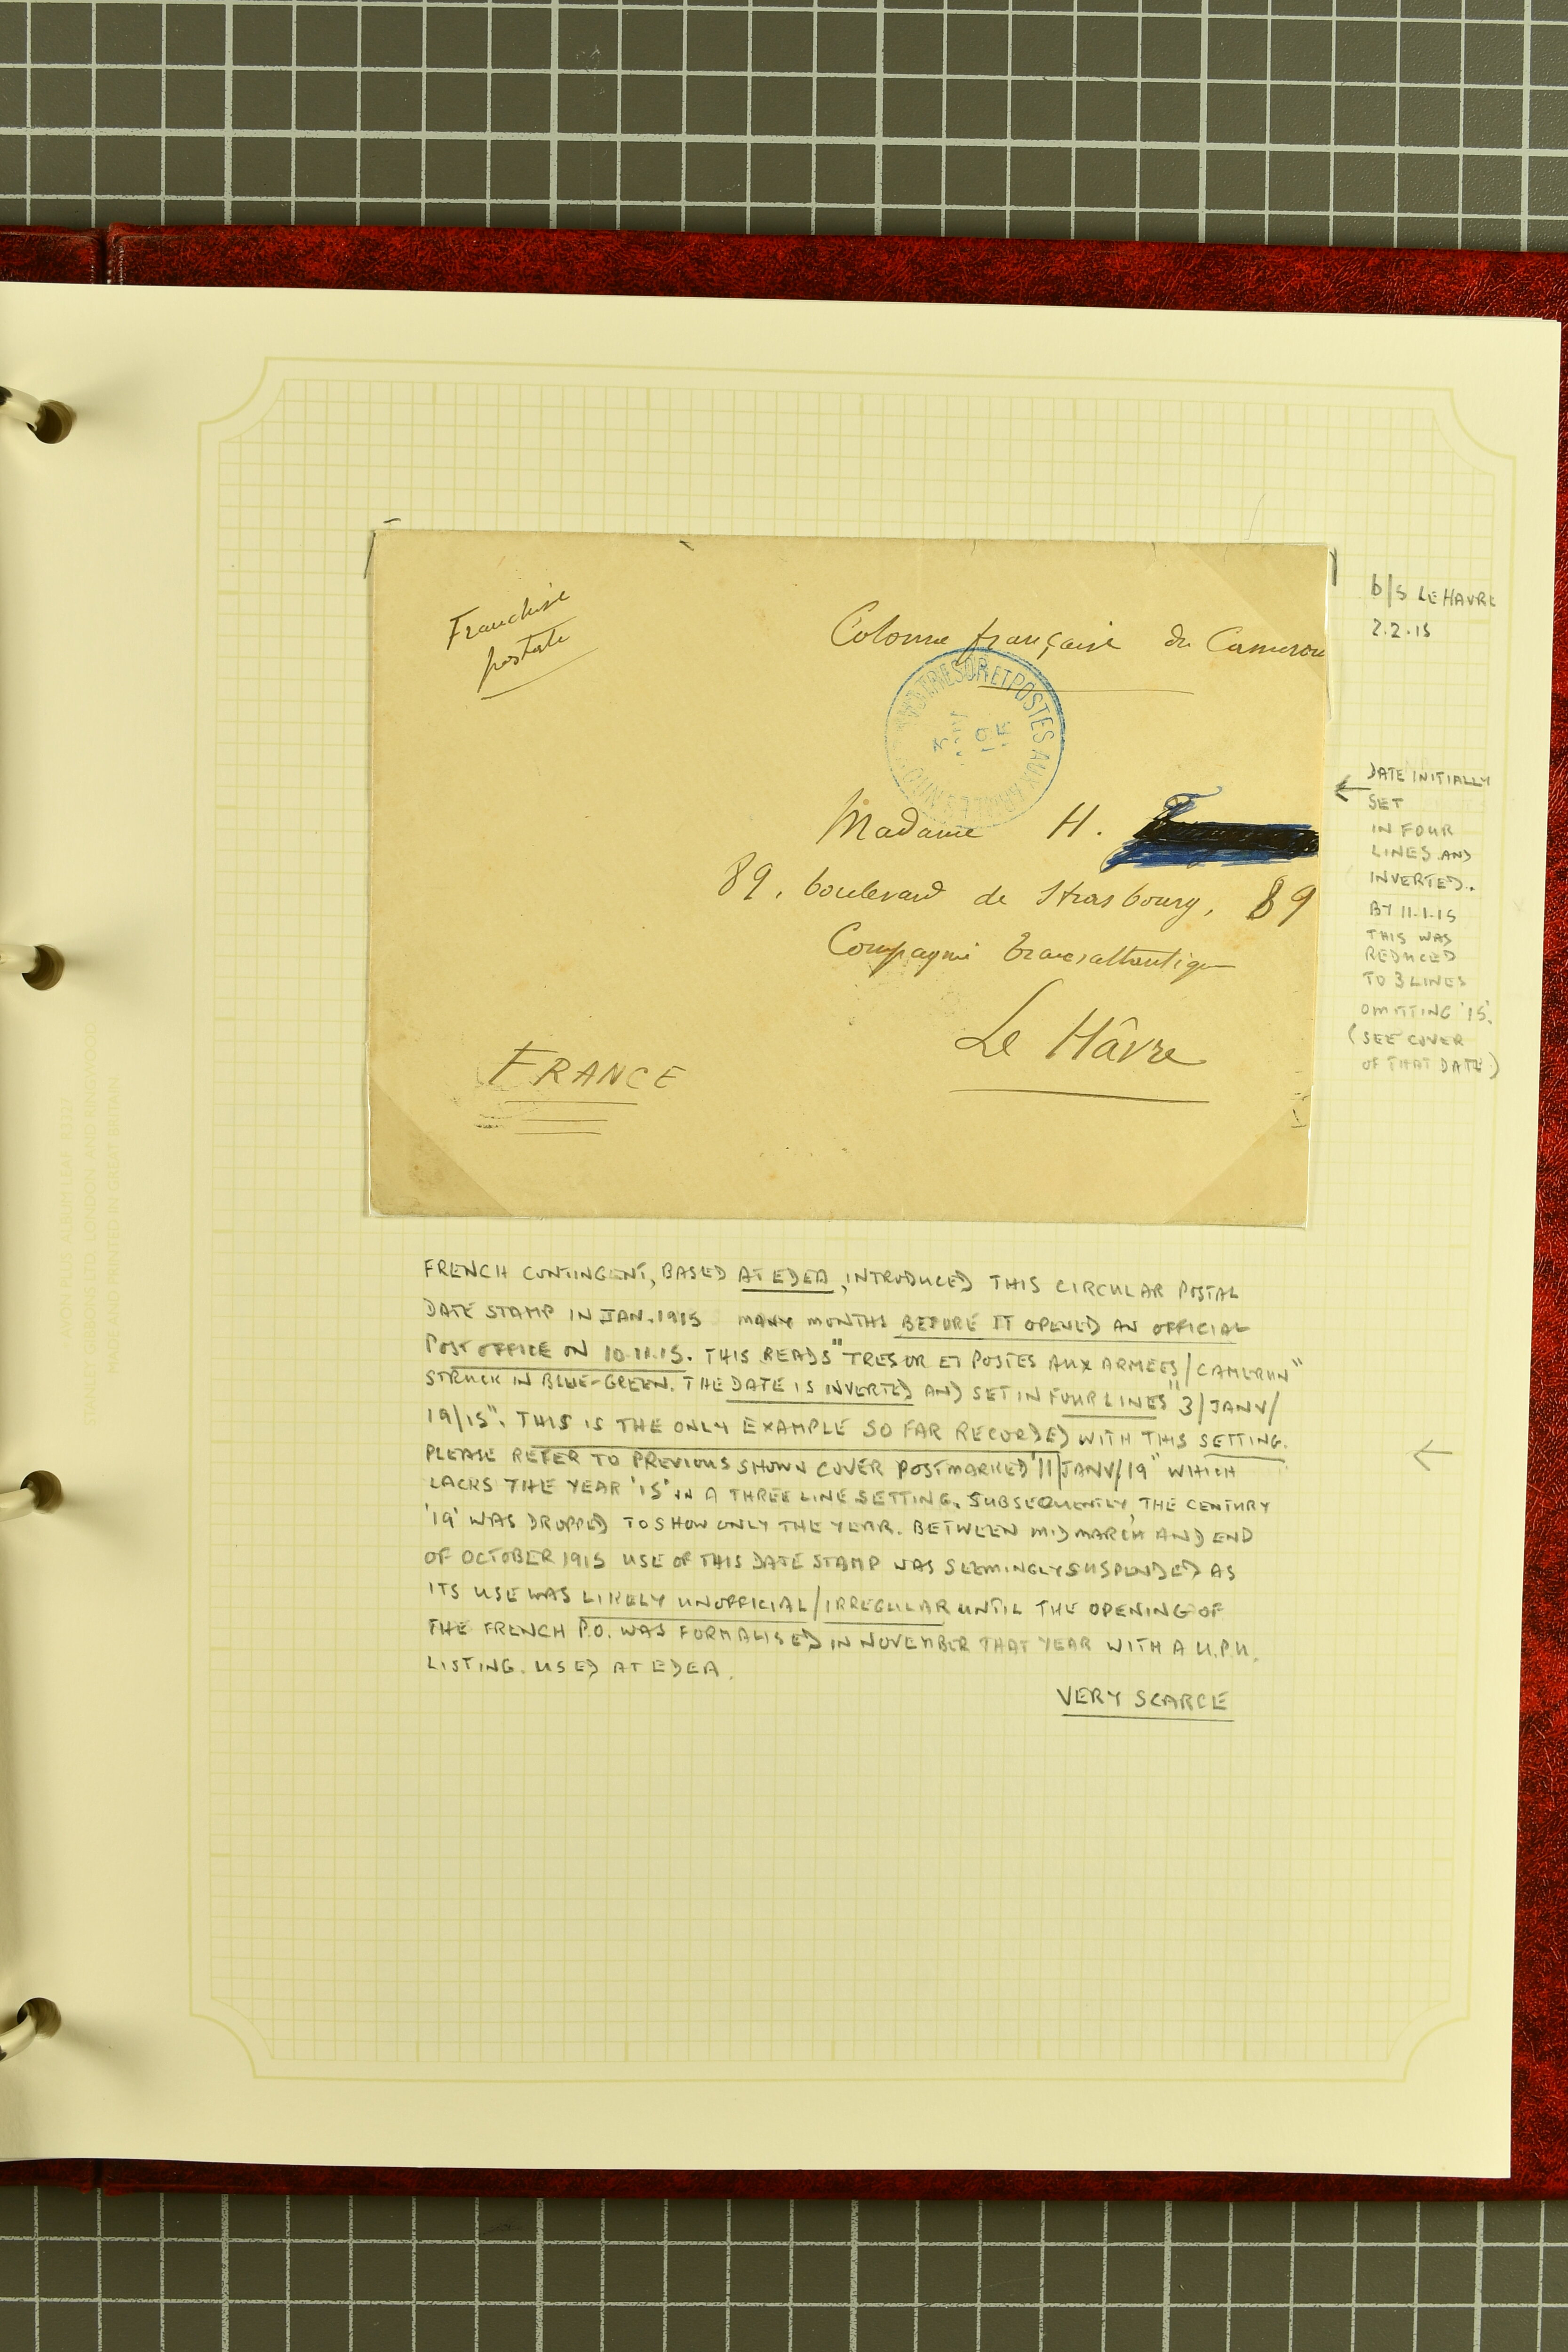 Franchise
postale
Colonne française du Cameroun
TRESOR ET POSTES AUX ARMEES
3
19
15
Madame H.
89, boulevard de Strasbourg, 89
Compagnie transatlantique
Le Hâvre
FRANCE
b/s LE HAVRE
2.2.15
DATE INITIALLY
SET
IN FOUR
LINES AND
INVERTED.
BY 11.1.15
THIS WAS
REDUCED
TO 3 LINES
OMITTING '15'.
(SEE COVER
OF THAT DATE)
FRENCH CONTINGENT, BASED AT EDEA, INTRODUCED THIS CIRCULAR POSTAL
DATE STAMP IN JAN. 1915 MANY MONTHS BEFORE IT OPENED AN OFFICIAL
POST OFFICE ON 10.11.15. THIS READS "TRESOR ET POSTES AUX ARMEES/CAMERUN"
STRUCK IN BLUE-GREEN. THE DATE IS INVERTED AND SET IN FOUR LINES "3/JANV/
19/15". THIS IS THE ONLY EXAMPLE SO FAR RECORDED WITH THIS SETTING.
PLEASE REFER TO PREVIOUS SHOWN COVER POSTMARKED "11/JANV/19" WHICH
LACKS THE YEAR '15' IN A THREE LINE SETTING. SUBSEQUENTLY, THE CENTURY
'19' WAS DROPPED TO SHOW ONLY THE YEAR. BETWEEN MID MARCH AND END
OF OCTOBER 1915 USE OF THIS DATE STAMP WAS SEEMINGLY SUSPENDED AS
ITS USE WAS LIKELY UNOFFICIAL/IRREGULAR UNTIL THE OPENING OF
THE FRENCH P.O. WAS FORMALISED IN NOVEMBER THAT YEAR WITH A U.P.U.
LISTING. USED AT EDEA.
VERY SCARCE